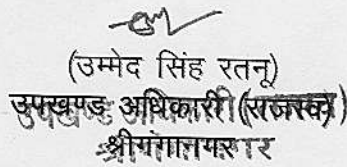 (उम्मेद सिंह रतनू)
उपखण्ड अधिकारी (राजस्व)
श्रीगंगानगर